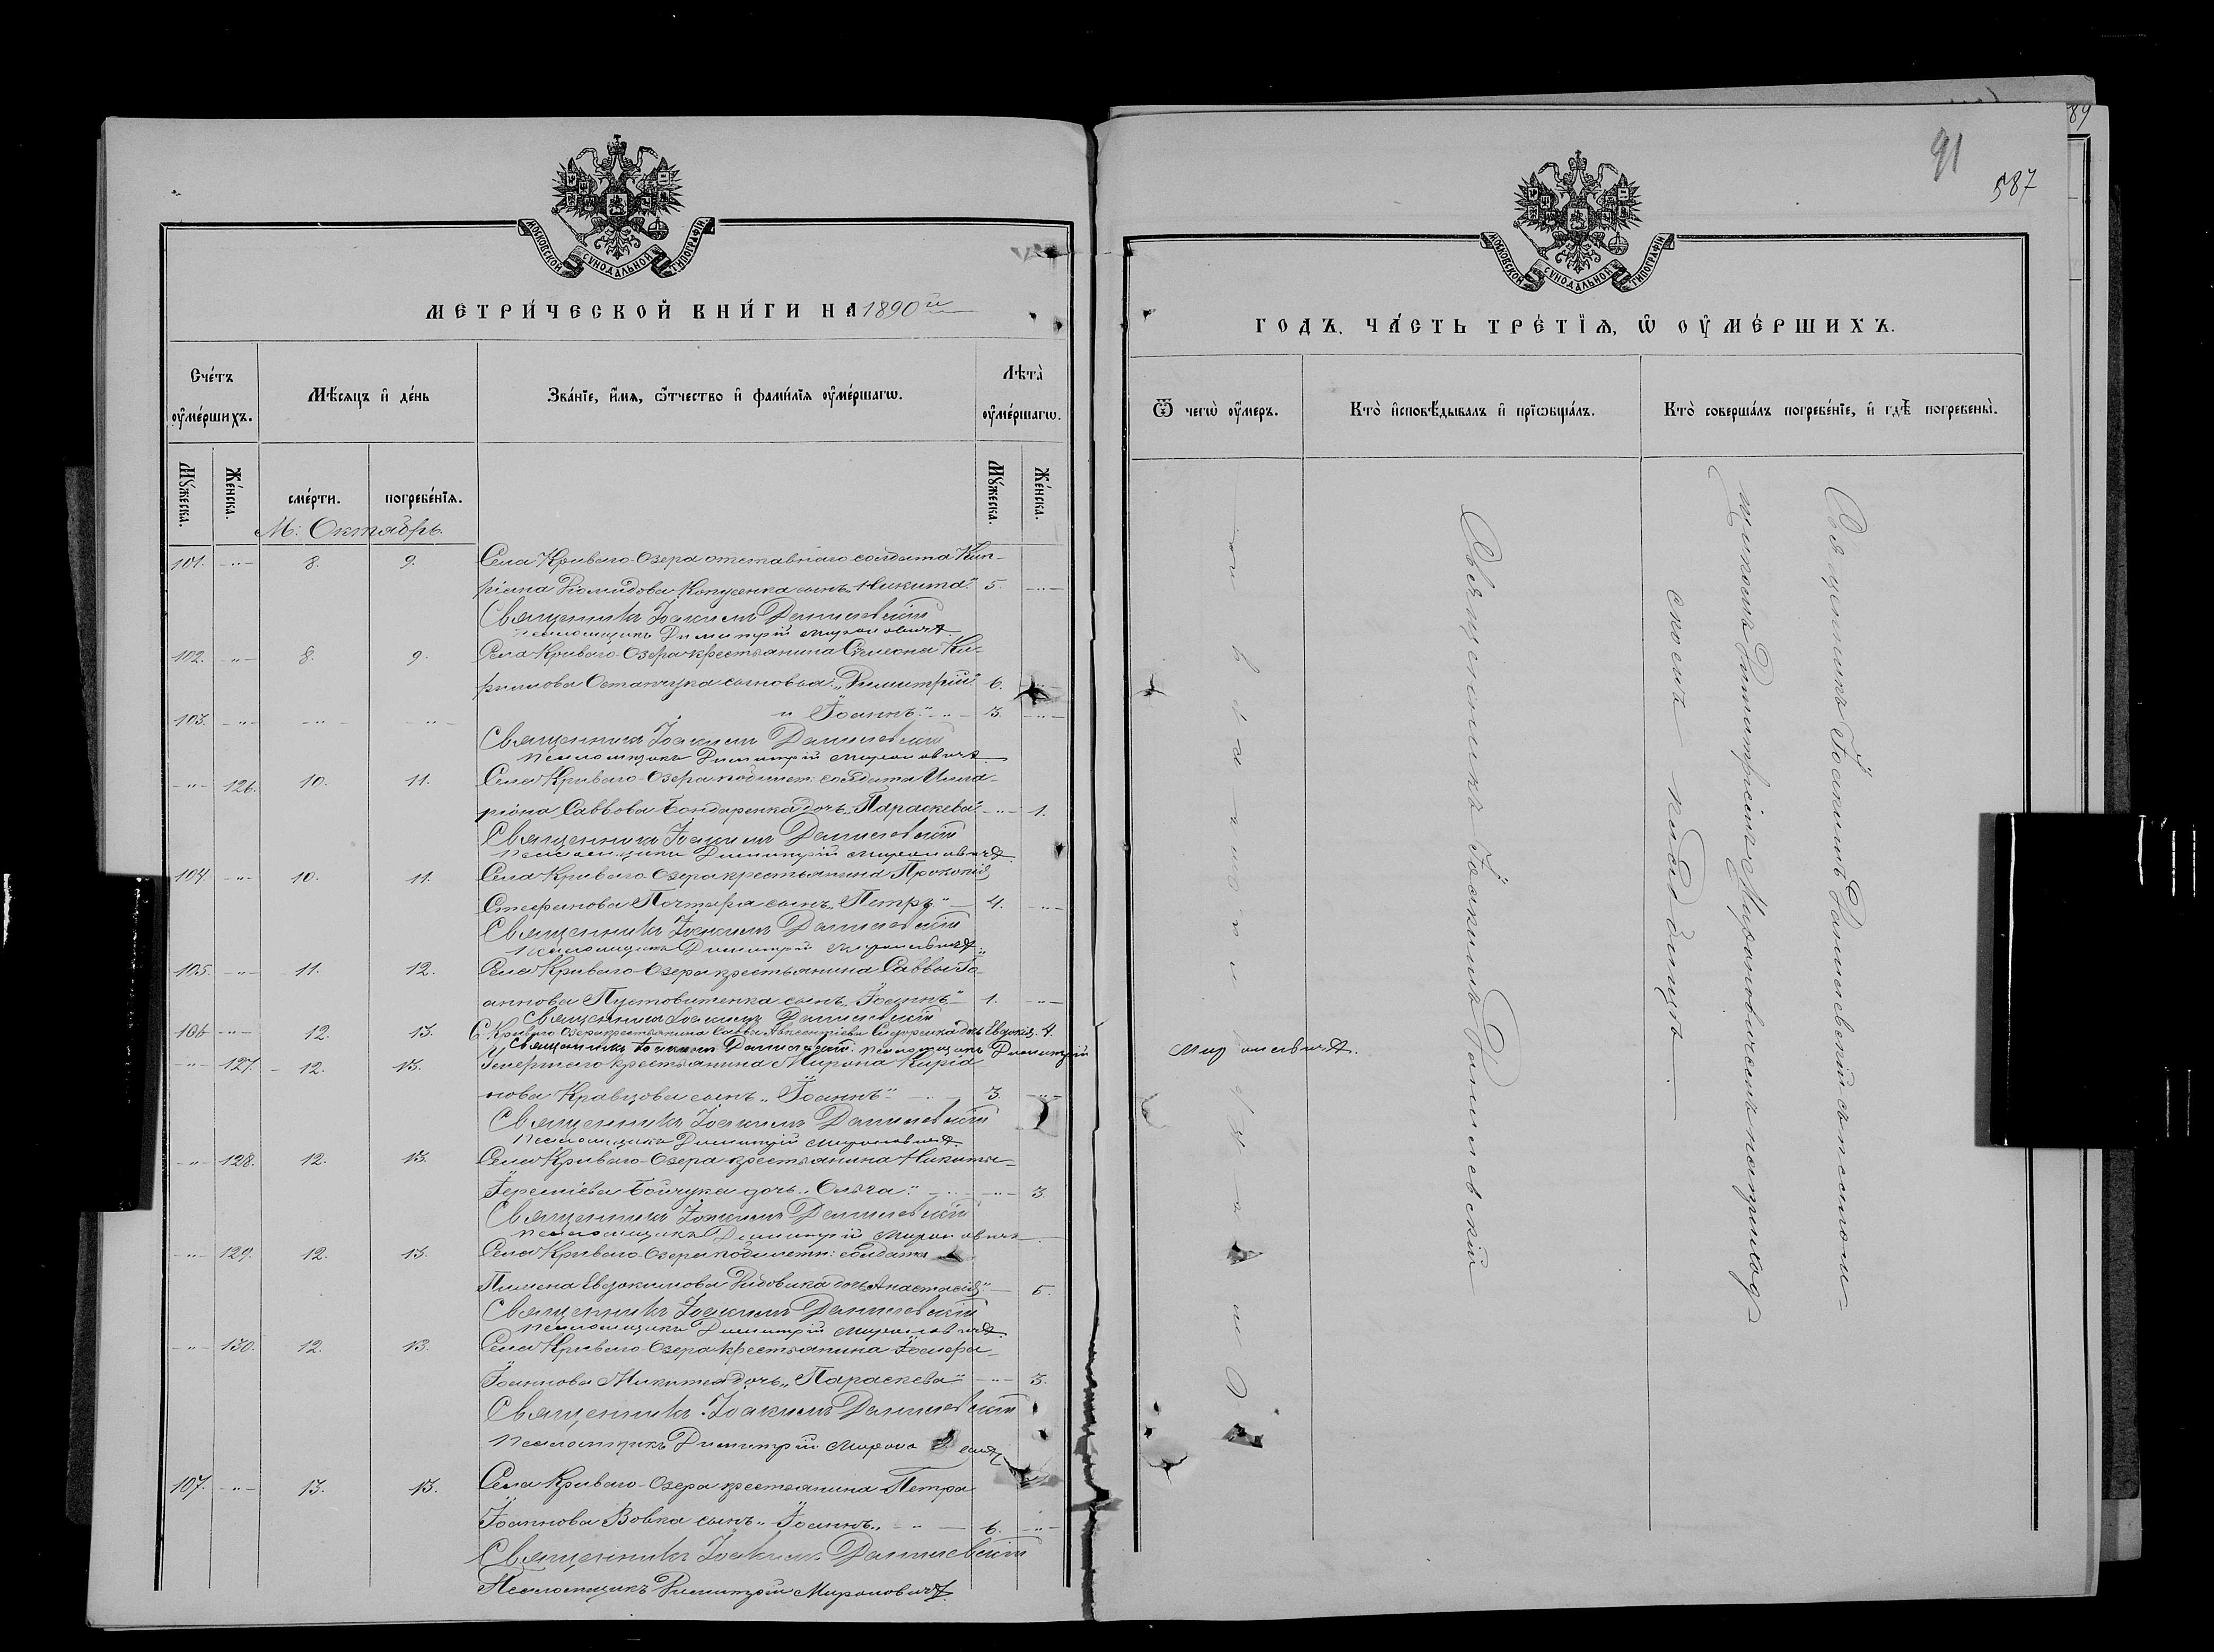 МОСКОВСКОЙ СУНОДАЛЬНОЙ ТИПОГРАФІИ
МЕТРИ́ЧЕСКОЙ КНИ́ГИ НА 1890й
Сче́тъ оу҆ме́ршихъ.
Мѣ́сяцъ и҆ де́нь
Зва́нїе, и҆́мя, ѻ҆́тчество и҆ фами́лїя оу҆ме́ршагѡ.
Лѣта̀ оу҆ме́ршагѡ.
Мꙋ́жеска.
Же́нска.
сме́рти.
погребе́нїя.
Мꙋ́жеска.
Же́нска.
М: Октябрь.
101. -"- 8. 9. Села Криваго-Озера отставнаго солдата Кип-
ріана Копусенка сынъ „Никита" 5. -"-
Священникъ Іоакимъ Данилевскій
Псаломщикъ Димитрій Мироновичъ.
102. -"- 8. 9. Села Криваго-Озера крестьянина Симеона Ки-
рилова Остапчука сыновья: „Димитрій" 6. -"-
103. -"- -"- -"- и „Іоаннъ" -"- 3. -"-
Священникъ Іоакимъ Данилевскій
Псаломщикъ Димитрій Мироновичъ
-"- 126. 10. 11. Села Криваго-Озера солдата Илла-
ріона Саввова Бондаренка дочь „Параскева" -"- 1.
Священникъ Іоакимъ Данилевскій
Псаломщикъ Димитрій Мироновичъ.
104. -"- 10. 11. Села Криваго-Озера крестьянина Прокопія
Стефанова Почтаря сынъ „Петръ" 4. -"-
Священникъ Іоакимъ Данилевскій
Псаломщикъ Димитрій Мироновичъ.
105. -"- 11. 12. Села Криваго-Озера крестьянина Саввы Іо-
аннова Пустовитенка сынъ „Іоаннъ" 1. -"-
Священникъ Іоакимъ Данилевскій
106 -"- 12. 13. С. Криваго Озера крестьянина Саввы Авксентіева Сидоренка дочь Евдокія. 4
Священникъ Іоакимъ Данилевскій. Псаломщикъ Димитрій
-"- 127. 12. 13. Умершаго крестьянина Мирона
нова Кравцова сынъ „Іоаннъ" 3. -"-
Священникъ Іоакимъ Данилевскій
Псаломщикъ Димитрій Мироновичъ.
-"- 128. 12. 13. Села Криваго-Озера крестьянина Никиты
Іереміева Бойчука дочь „Ольга" -"- 3.
Священникъ Іоакимъ Данилевскій
Псаломщикъ Димитрій Мироновичъ
-"- 129. 12. 13. Села Криваго-Озера солдата
Пимена Евдокимова дочь „Анастасія" 5.
Священникъ Іоакимъ Данилевскій
Псаломщикъ Димитрій Мироновичъ.
-"- 130. 12. 13. Села Криваго-Озера крестьянина Іосифа
Іоаннова дочь „Параскева" -"- 3.
Священникъ Іоакимъ Данилевскій
Псаломщикъ Димитрій
107. -"- 13. 15. Села Криваго-Озера крестьянина Петра
Іоаннова Вовка сынъ „Іоаннъ" 6. -"-
Священникъ Іоакимъ Данилевскій
Псаломщикъ Димитрій Мироновичъ.
91
587
89
МОСКОВСКОЙ СУНОДАЛЬНОЙ ТИПОГРАФІИ
ГОДЪ, ЧА́СТЬ ТРЕ́ТЇѦ, Ѡ҆ ОУ҆МЕ́РШИХЪ.
Ѿ чегѡ̀ оу҆́меръ.
Кто̀ и҆сповѣ́дывалъ и҆ прїѡбща́лъ.
Кто̀ соверша́лъ погребе́нїе, и҆ гдѣ̀ погребены̀.
Мироновичъ.
Священникъ Іоакимъ Данилевскій
Священникъ Іоакимъ Данилевскій съ псалом-
щикомъ Димитріемъ Мироновичемъ на приход-
скомъ кладбищѣ.